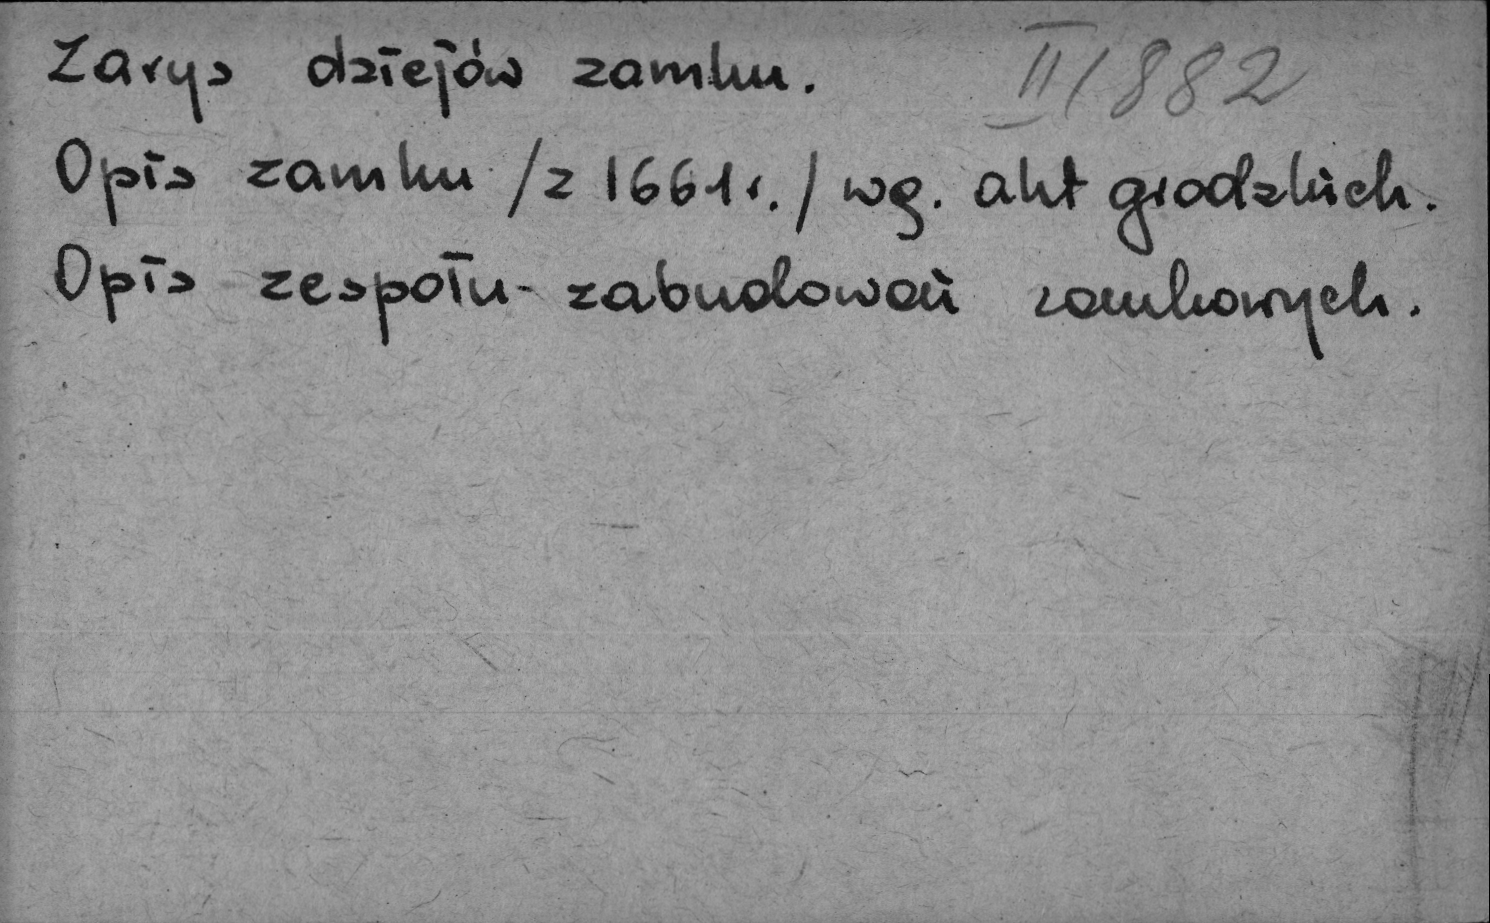 Zarys dziejów zamku. II/882
Opis zamku /z 1661r./ wg. akt grodzkich.
Opis zespołu zabudowań zamkowych.